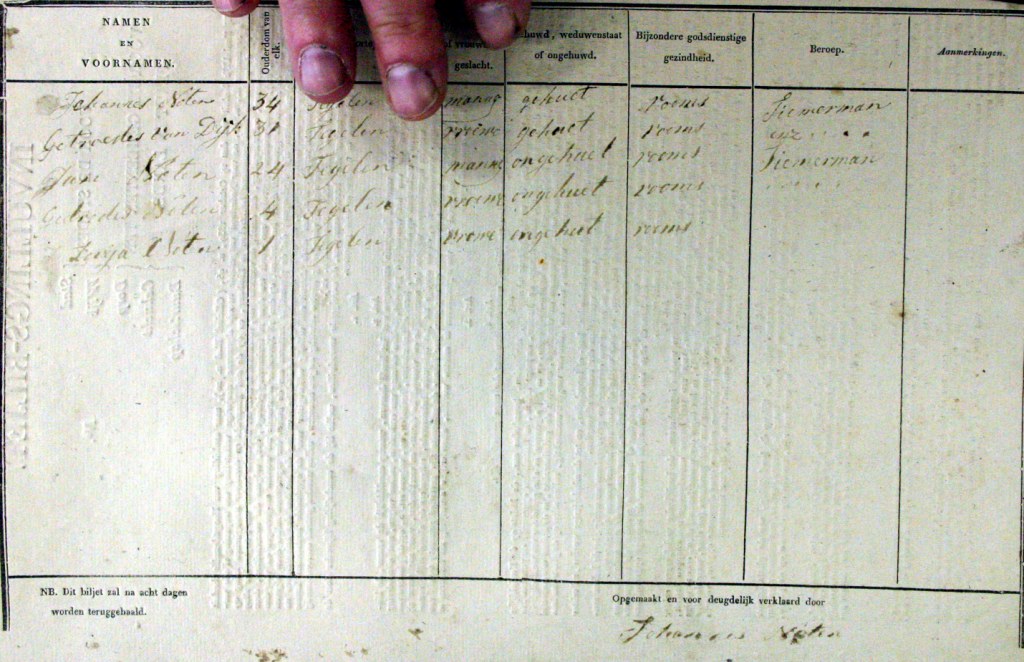 NAMEN
EN
VOORNAMEN.
Ouderdom van
elk.
geslacht.
weduwenstaat
of ongehuwd.
Bijzondere godsdienstige
gezindheid.
Beroep.
Aanmerkingen.
Johannes Noten 34 Tegelen manne gehuet rooms Tiemerman
Getroedes van Dijk 31 Tegelen vrouwe gehuet rooms
Jan Noten 24 Tegelen manne ongehuet rooms Tiemerman
Noten 4 Tegelen vrouwe ongehuet rooms
Noten 1 Tegelen vrouwe ongehuet rooms
NB. Dit biljet zal na acht dagen
worden teruggehaald.
Opgemaakt en voor deugdelijk verklaard door
Johannes Noten